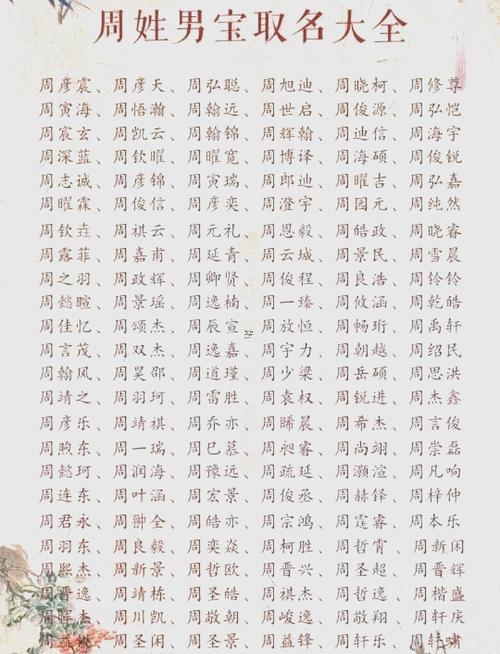 周姓男宝取名大全
周彦震、周彦天、周弘聪、周旭迪、周晓柯、周修尊
周寅海、周悟瀚、周翰远、周世启、周俊源、周弘恺
周宸玄、周凯云、周翰锦、周辉翰、周迪信、周海宇
周深蓝、周钦曜、周曜宽、周博译、周海硕、周俊锐
周志诚、周彦锦、周寅瑞、周郎迪、周曜吉、周弘嘉
周曜霖、周俊信、周彦奕、周澄宇、周园元、周纯然
周钦垚、周祺云、周元礼、周恩毅、周皓政、周晓睿
周露菲、周嘉甫、周延青、周云城、周景民、周雪晨
周之羽、周政辉、周卿贤、周俊程、周良浩、周铃铃
周懿暄、周景瑶、周逸楠、周一臻、周攸涵、周乾皓
周佳忆、周颂杰、周辰宣、周放恒、周畅珩、周禹轩
周言茂、周双杰、周逸嘉、周宇力、周朝越、周绍民
周翰风、周昊邵、周道瑾、周少梁、周岳硕、周思洪
周靖之、周羽珂、周雷胜、周袁权、周锐进、周杰鑫
周彦乐、周靖祺、周乔亦、周晞晨、周希杰、周言俊
周煦东、周一瑞、周巳慕、周昶睿、周尚翊、周崇磊
周懿珂、周润海、周豫远、周疏延、周灏渲、周凡响
周连东、周叶涵、周宏景、周俊丞、周赫铎、周梓仲
周君永、周翀全、周皓亦、周宗鸿、周霆睿、周本乐
周羽东、周良毅、周奕焱、周柯胜、周哲霄、周新闲
周熙杰、周新景、周哲欧、周晋兴、周圣超、周晋辉
周晋逸、周靖栋、周圣皓、周祺杰、周哲逸、周楷盛
周晖杰、周川凯、周敬朝、周峻逸、周敬翔、周轩庆
周益、周圣闲、周圣景、周益锋、周轩乐、周轩啸